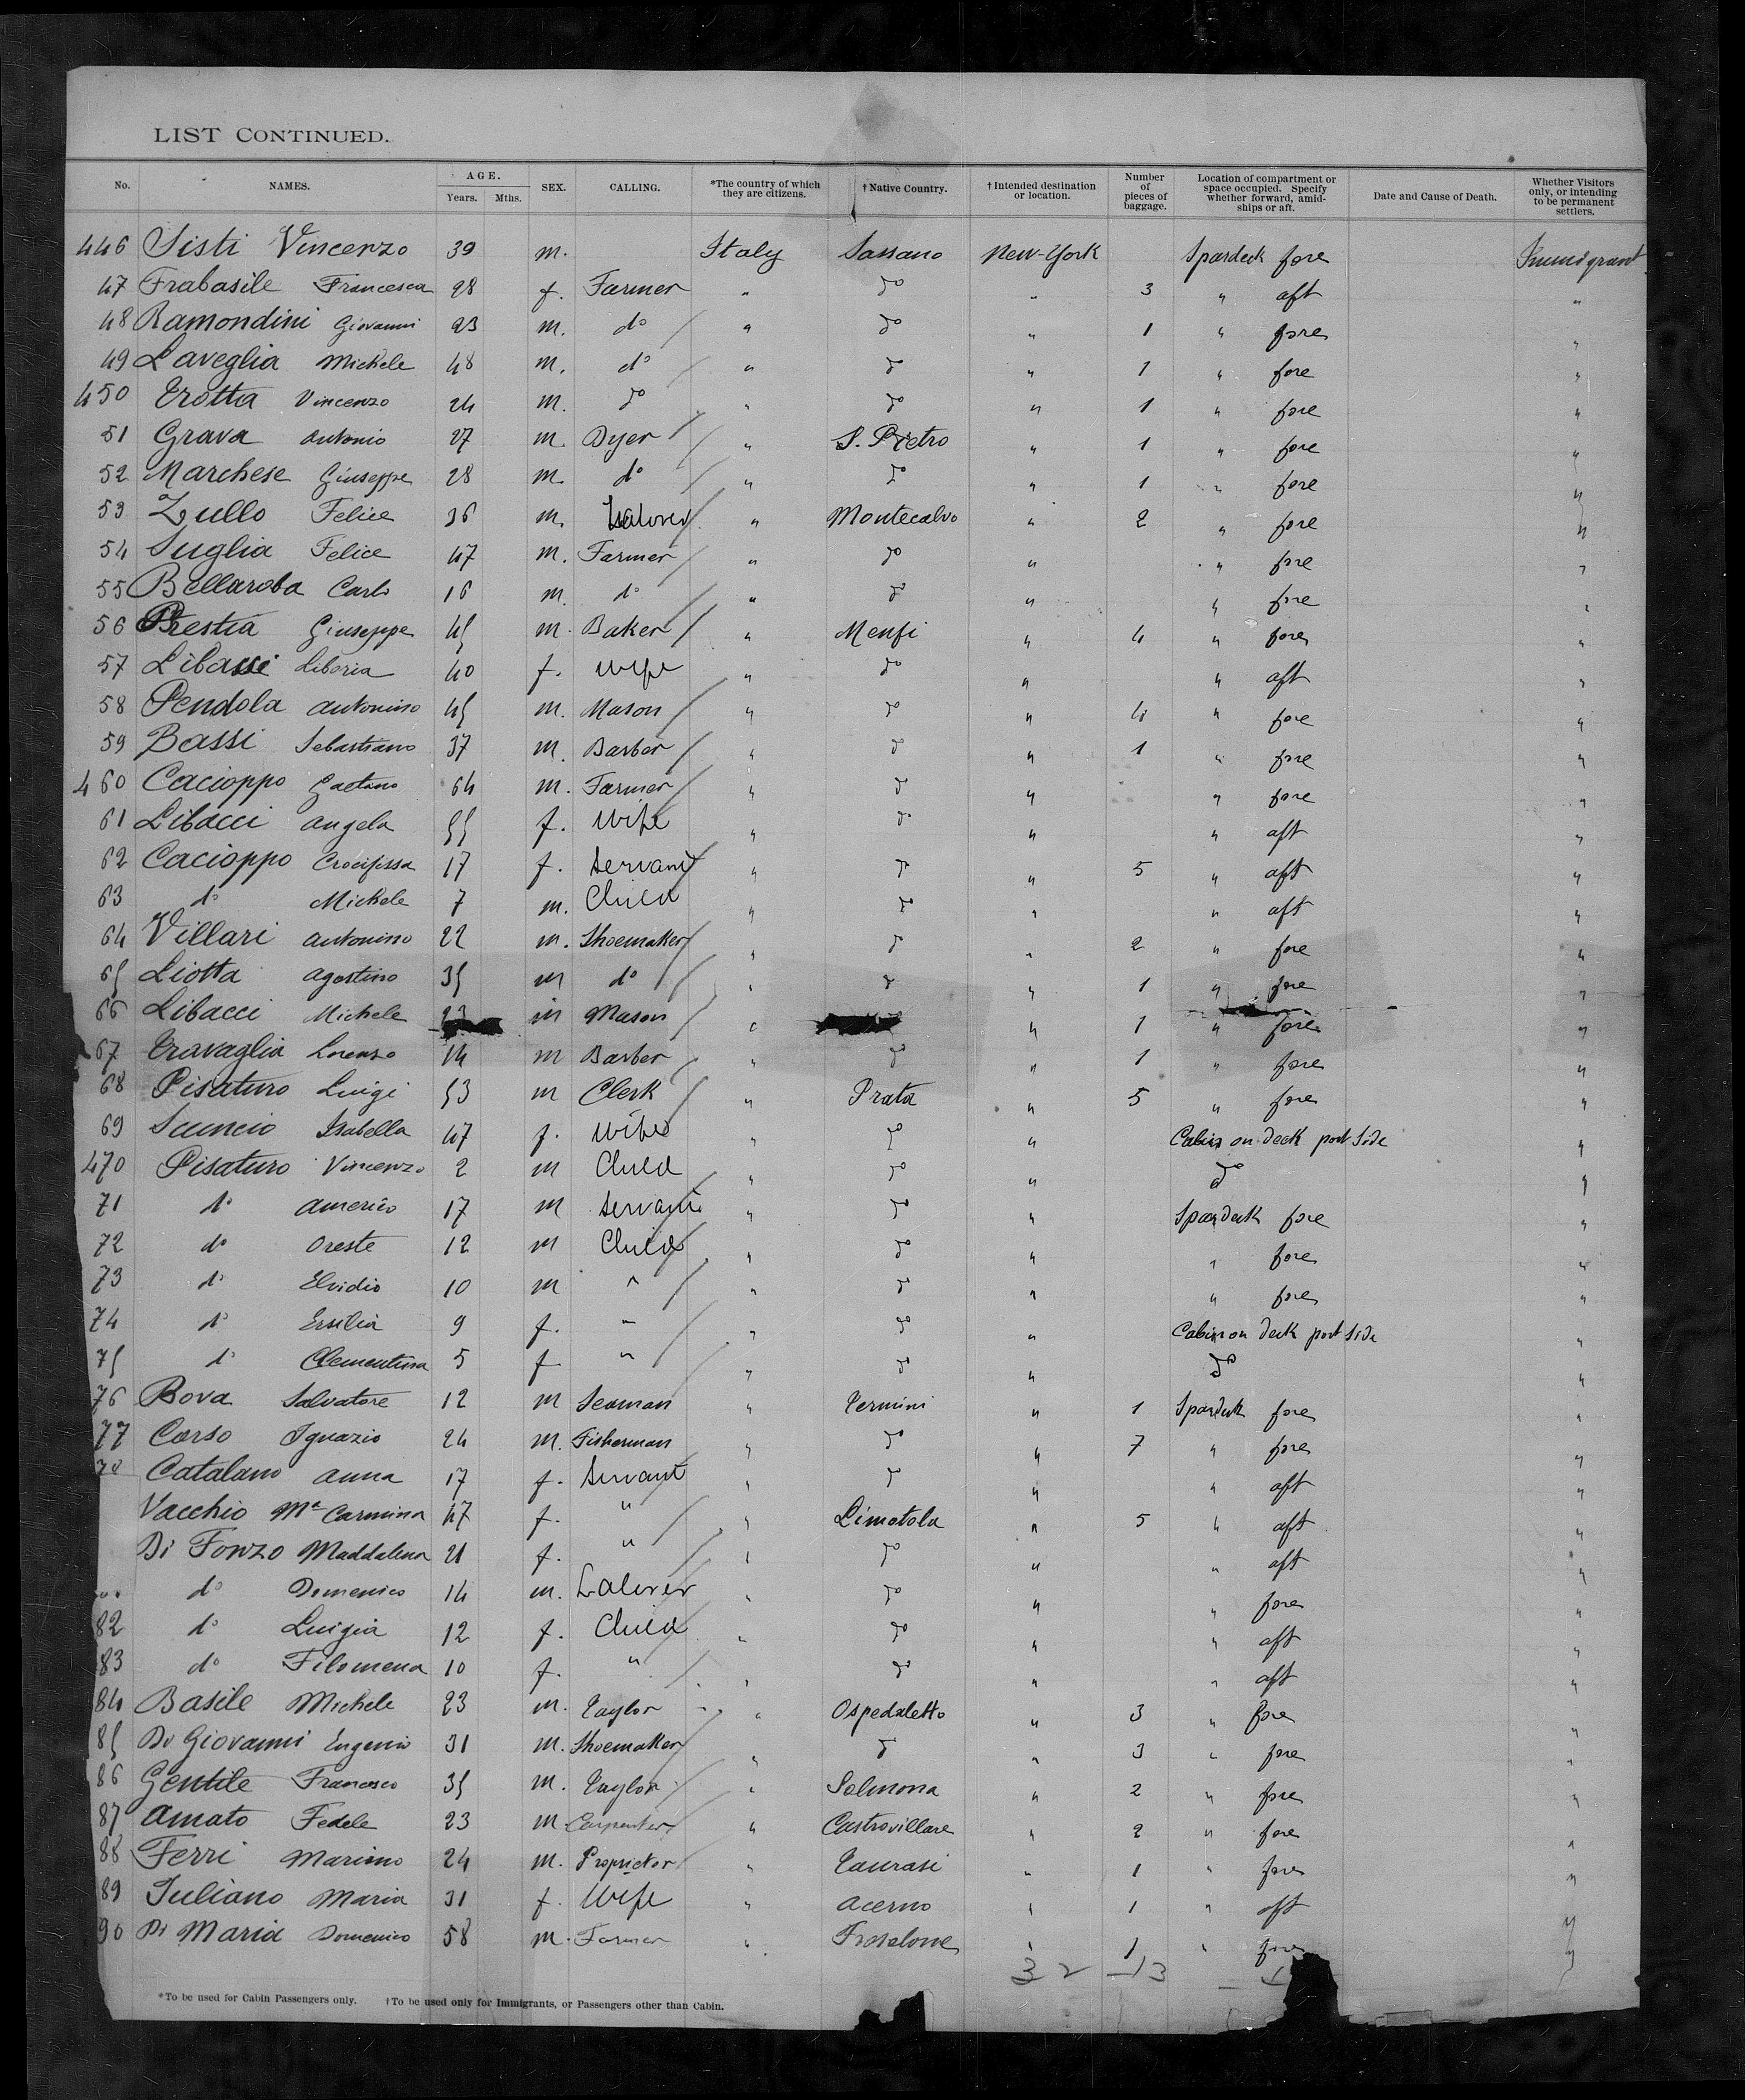 LIST CONTINUED.
No. NAMES. AGE. Years. Mths. SEX. CALLING. *The country of which they are citizens. †Native Country. †Intended destination or location. Number of pieces of baggage. Location of compartment or space occupied. Specify whether forward, amidships or aft. Date and Cause of Death. Whether Visitors only, or intending to be permanent settlers.
446 Sisti Vincenzo 39 m. Italy Sassano New-York Spardeck fore Immigrant
47 Frabasile Francesca 28 f. Farmer " do " 3 " aft "
48 Ramondini Giovanni 23 m. do " do " 1 " fore "
49 Laveglia Michele 48 m. do " do " 1 " fore "
450 Trotta Vincenzo 24 m. do " do " 1 " fore "
51 Grava Antonio 27 m. Dyer " S. Pietro " 1 " fore "
52 Marchese Giuseppe 28 m. do " do " 1 " fore "
53 Zullo Felice 36 m. " Montecalvo " 2 " fore "
54 Suglia Felice 47 m. Farmer " do " " fore "
55 Bellaroba Carlo 16 m. do " do " " fore "
56 Prestia Giuseppe 45 m. Baker " Menfi " 4 " fore "
57 Libassi Liboria 40 f. Wife " do " " aft "
58 Pendola Antonino 45 m. Mason " do " 4 " fore "
59 Bassi Sebastiano 37 m. Barber " do " 1 " fore "
460 Cacioppo Gaetano 64 m. Farmer " do " " fore "
61 Libacci Angela 55 f. Wife " do " " aft "
62 Cacioppo Crocifissa 17 f. Servant " do " 5 " aft "
63 do Michele 7 m. Child " do " " aft "
64 Villari Antonino 22 m. Shoemaker " do " 2 " fore "
65 Liotta Agostino 35 m do " do " 1 " fore "
66 Libacci Michele 23 m Mason " " 1 " fore "
67 Travaglia Lorenzo 14 m Barber " do " 1 " fore "
68 Pisaturo Luigi 53 m Clerk " Prata " 5 " fore "
69 Isabella 47 f. Wife " do " Cabin on deck port side "
470 Pisaturo Vincenzo 2 m Child " do " do "
71 do Americo 17 m Servant " do " Spardeck fore "
72 do Oreste 12 m Child " do " " fore "
73 do Elvidio 10 m " " do " " fore "
74 do Ersilia 9 f. " " do " Cabin on deck port side "
75 do Clementina 5 f " " do " do "
76 Bova Salvatore 12 m Seaman " Termini " 1 Spardeck fore "
77 Corso Ignazio 24 m. Fisherman " do " 7 " fore "
78 Catalano Anna 17 f. Servant " do " " aft "
Vacchio Ma Carmina 47 f. " " Limatola " 5 " aft "
Di Fonzo Maddalena 21 f. " " do " " aft "
do Domenico 14 m. Laborer " do " " fore "
82 do Luigia 12 f. Child " do " " aft "
83 do Filomena 10 f. " " do " " aft "
84 Basile Michele 23 m. Taylor " Ospedaletto " 3 " fore
85 Di Giovanni Eugenio 31 m. Shoemaker " do " 3 " fore "
86 Gentile Francesco 35 m. Taylor " Solmona " 2 " fore "
87 Amato Fedele 23 m. Carpenter " Castrovillare " 2 " fore
88 Ferri Marino 24 m. Proprietor " Taurasi " 1 " fore "
89 Iuliano Maria 31 f. Wife " Acerno " 1 " aft "
90 Di Maria Domenico 58 m. Farmer " Frosolone " 1 " fore "
32 13
*To be used for Cabin Passengers only. †To be used only for Immigrants, or Passengers other than Cabin.